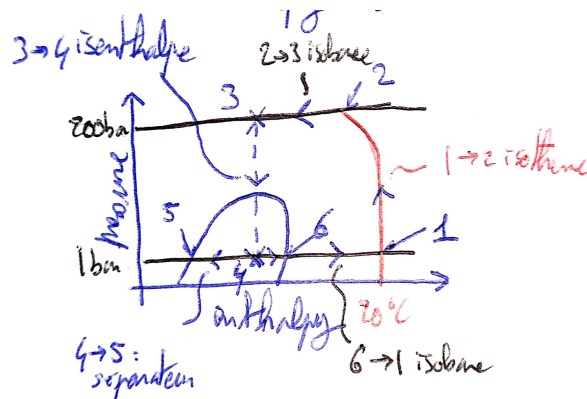 3→4 isenthalpe
2→3 isobare
2
3
200bar
1→2 isotherme
pressure
5
6
1
1bar
4
enthalpy
20°C
6→1 isobare
4→5 :
separateur